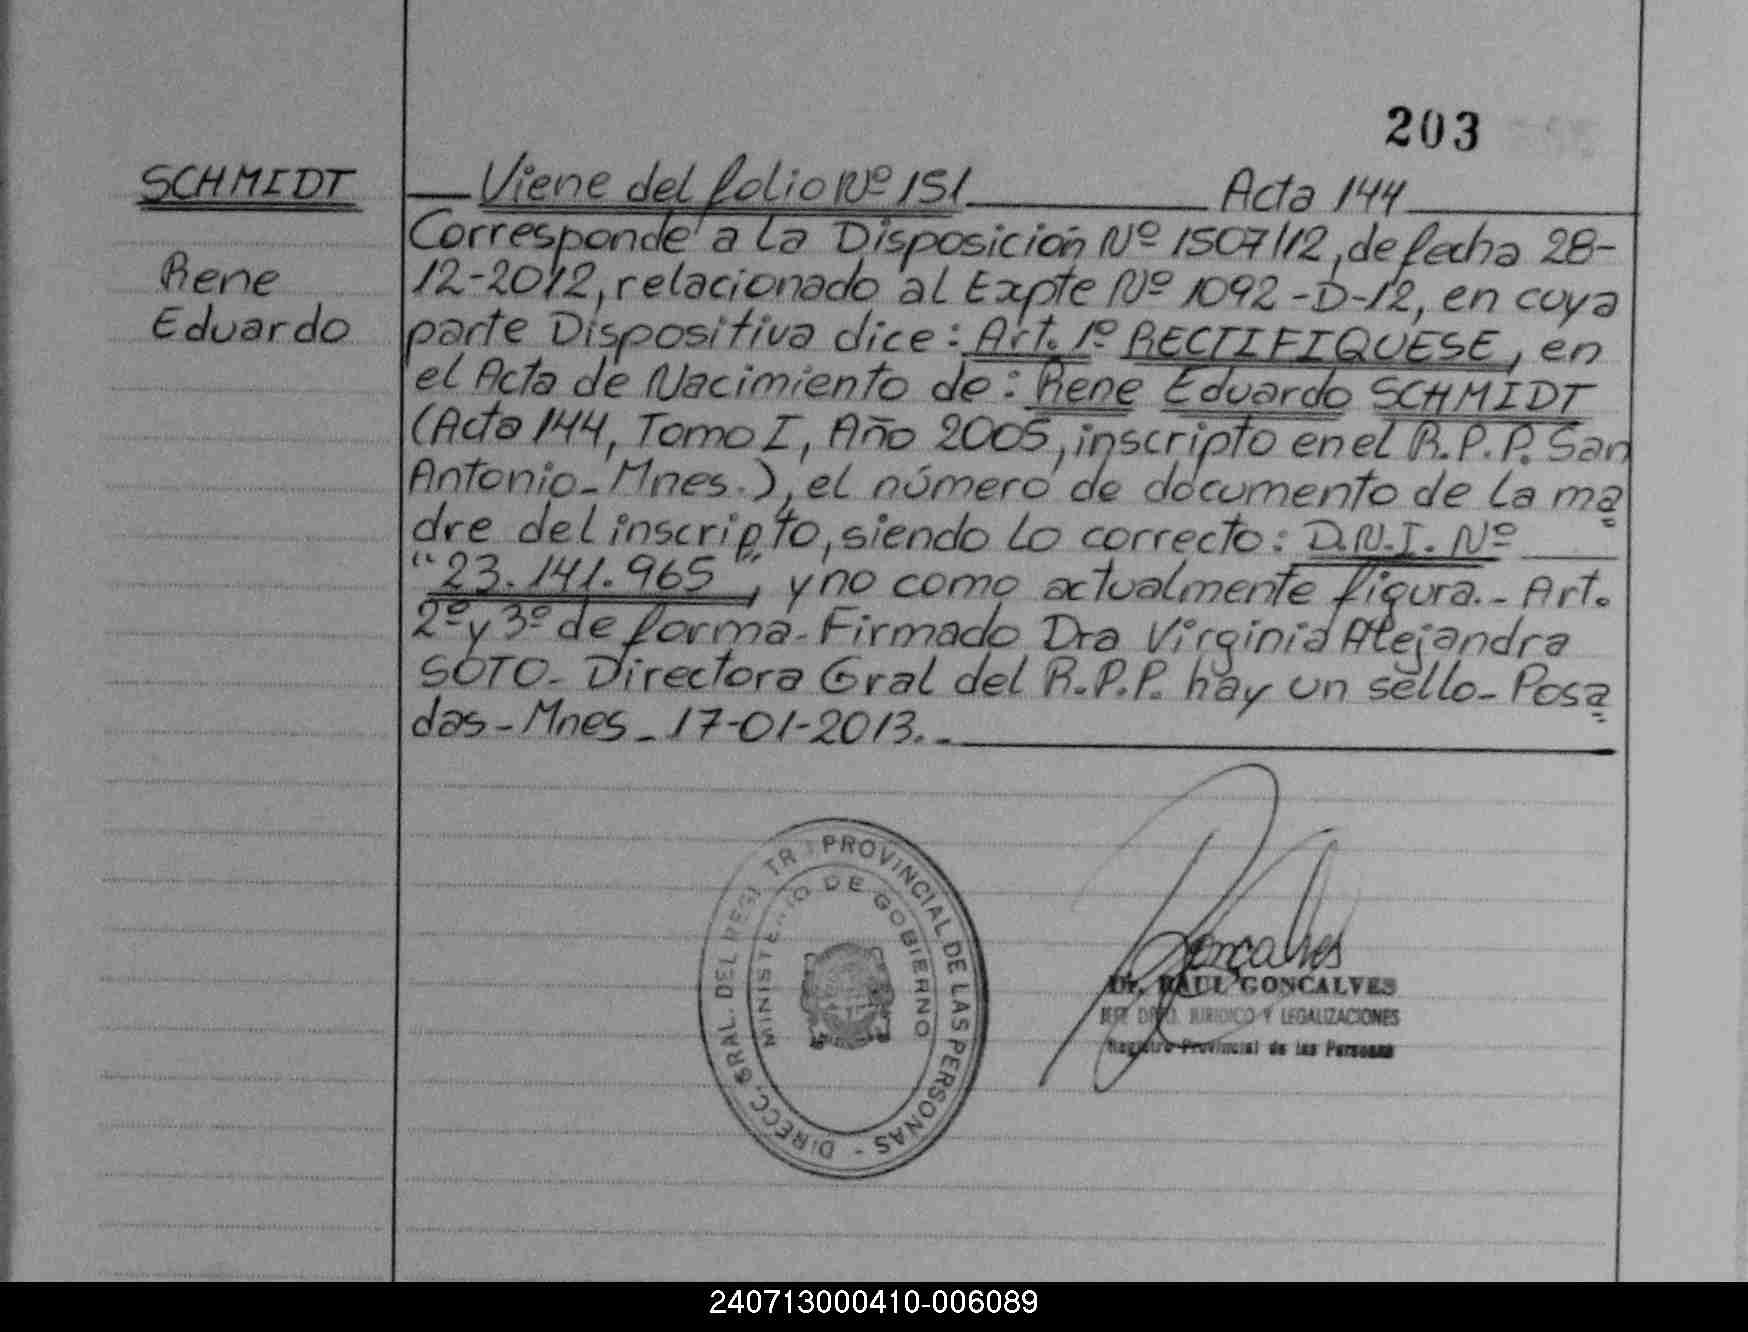 203
SCHMIDT
Rene
Eduardo
Viene del folio Nº 151 Acta 144
Corresponde a la Disposición Nº 1507/12, de fecha 28-
12-2012, relacionado al Expte Nº 1092-D-12, en cuya
parte Dispositiva dice: Art. 1º RECTIFIQUESE, en
el Acta de Nacimiento de: Rene Eduardo SCHMIDT
(Acta 144, Tomo I, Año 2005, inscripto en el R.P.P. San
Antonio-Mnes.), el número de documento de la ma
dre del inscripto, siendo lo correcto: D.N.I. Nº
"23.141.965", y no como actualmente figura.- Art.
2º y 3º de forma-Firmado Dra Virginia Alejandra
SOTO-Directora Gral del R.P.P. hay un sello-Posa
das-Mnes-17-01-2013.-
DIRECC. GRAL. DEL REGISTR PROVINCIAL DE LAS PERSONAS -
MINISTERIO DE GOBIERNO
Goncalves
Dr. RAUL GONCALVES
JEFE DPTO. JURIDICO Y LEGALIZACIONES
Registro Provincial de las Personas
240713000410-006089